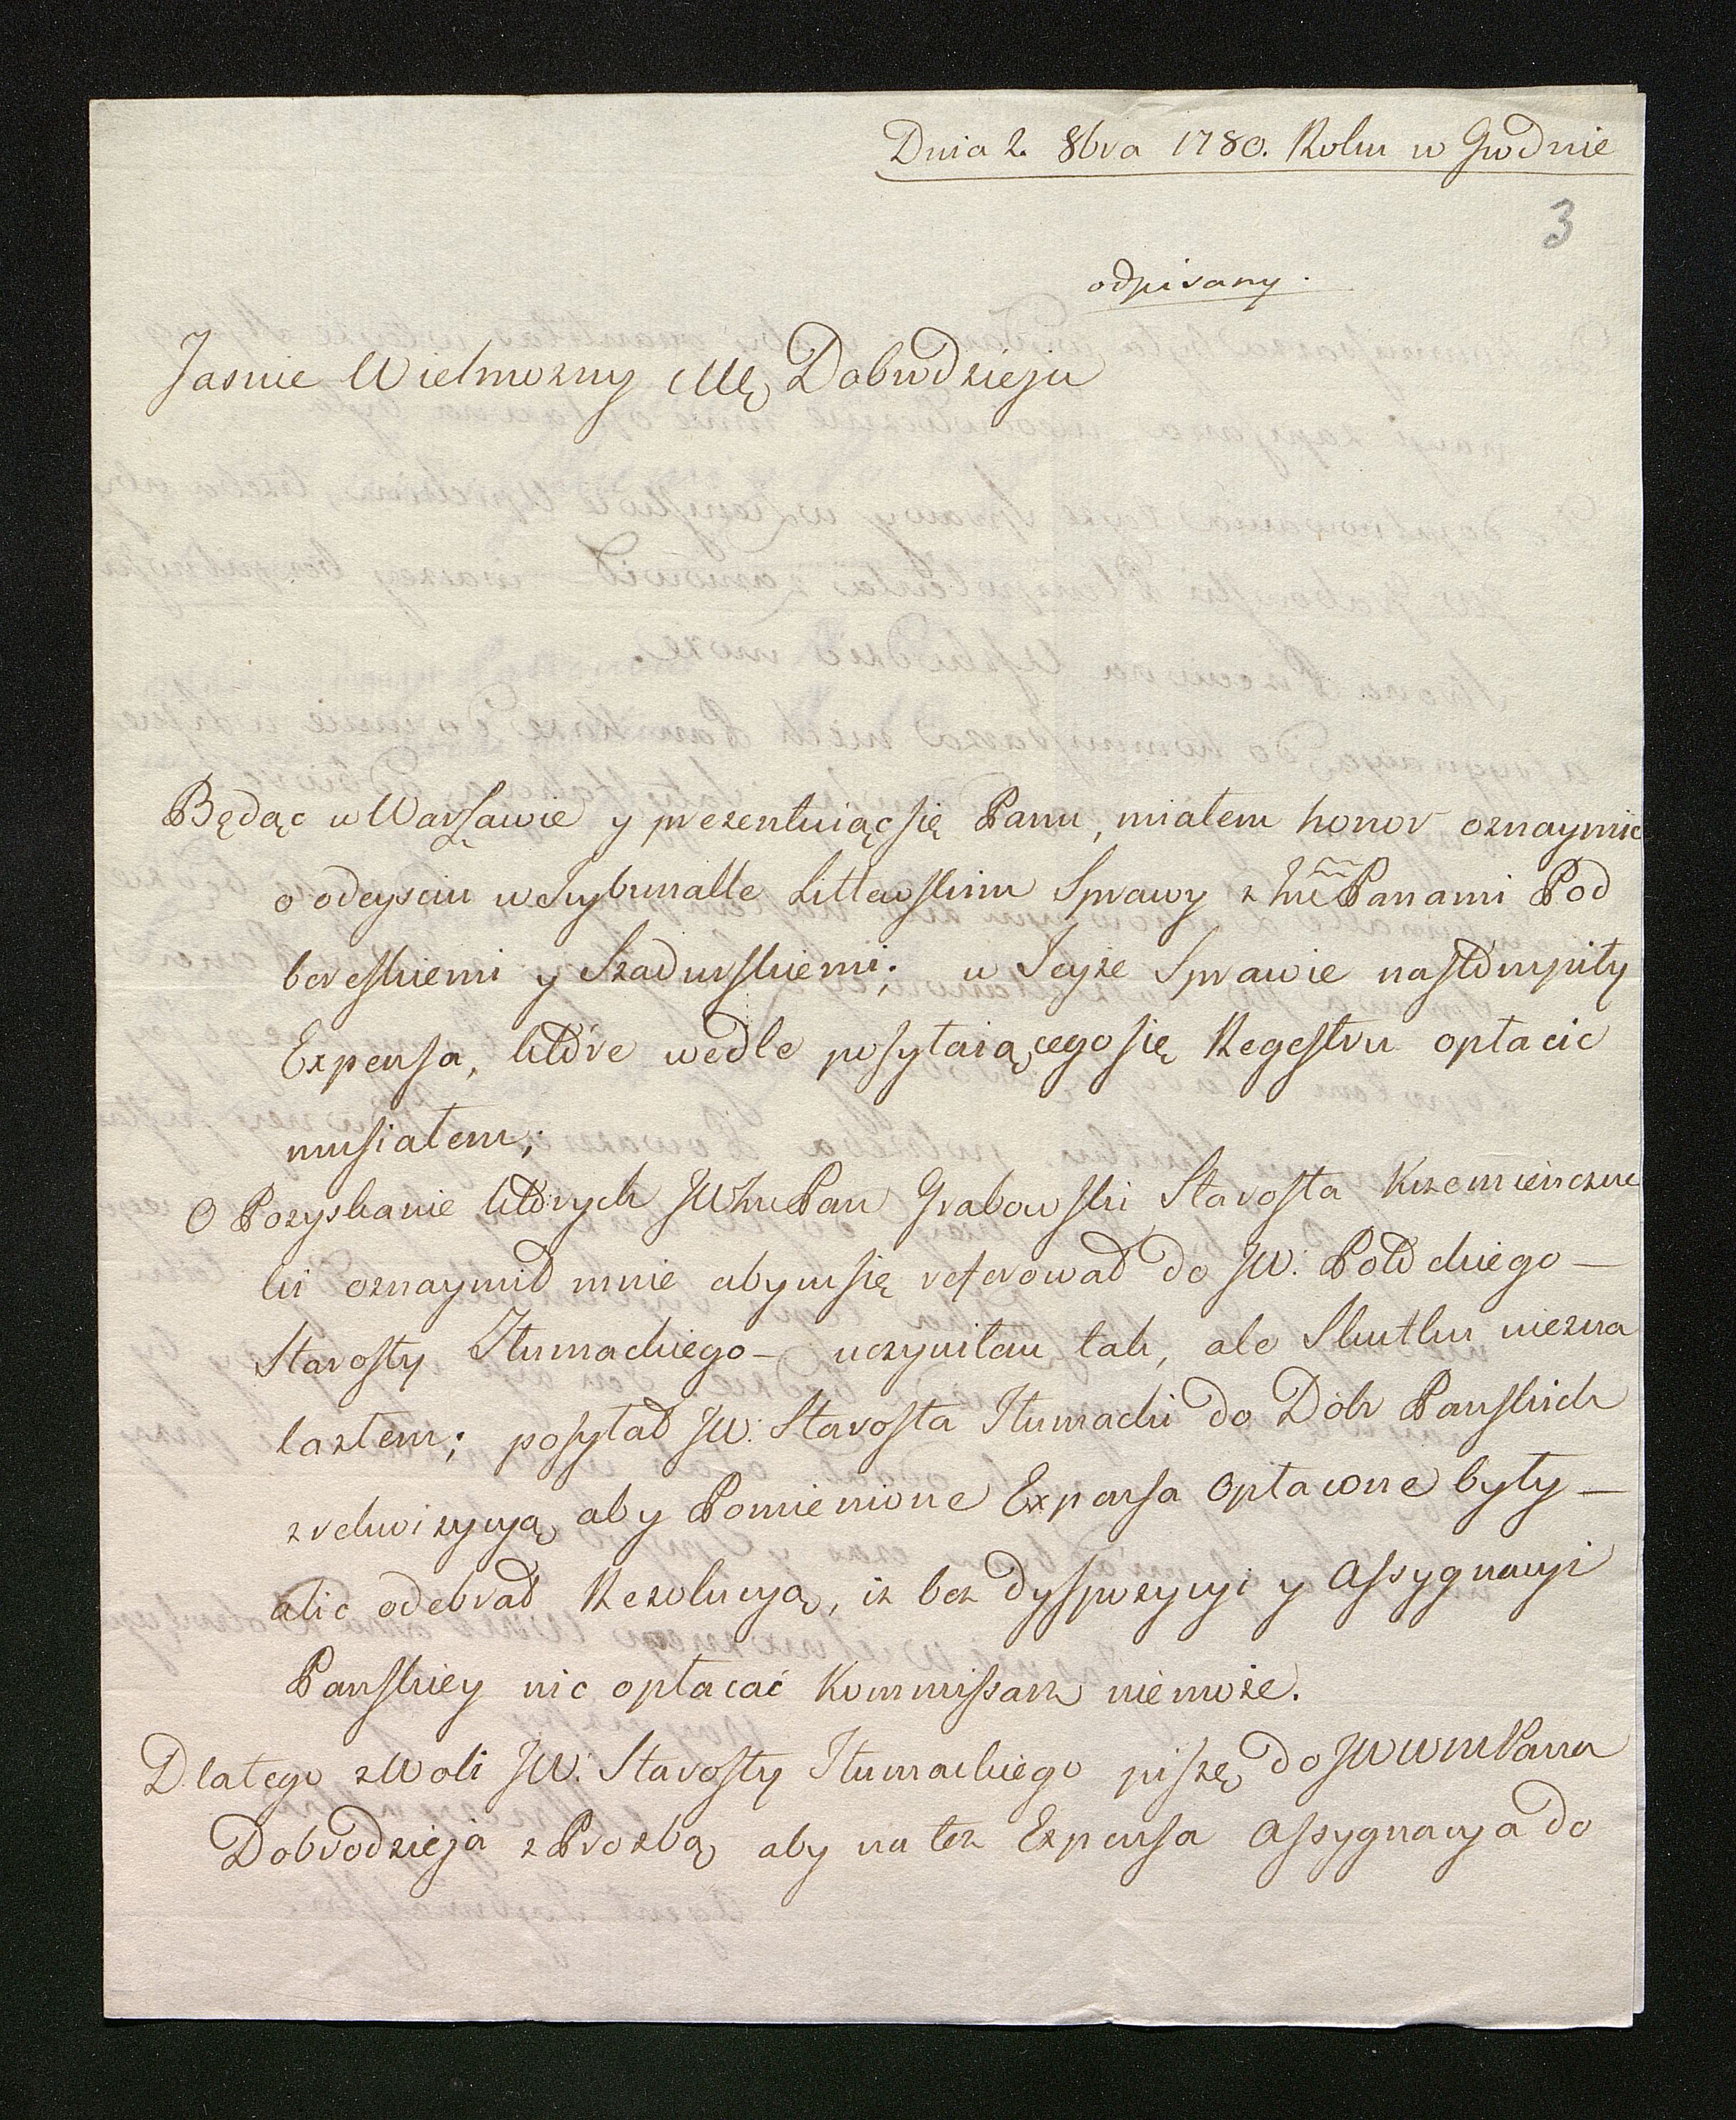 Dnia 2. 8bra 1780. Roku w Grodnie
3
odpisany.
Jasnie Wielmozny Mę Dobrodzieju
Będąc w Warszawie y prezentuiąc się Panu, miałem honor oznaymic
o odeysciu w Trybunalle Littewskim Sprawy z Panami Pod
bereskiemi y Szadurskiemi; w Teyże Sprawie nastompiły
Expensa, ktore wedle posyłaiącego się Regestru opłacic
musiałem;
O Pozyskanie ktorych JW Pan Grabowski Starosta Krzemienczuc
ki oznaymił mnie abym się referował do JW: Potockiego —
Starosty Tłumackiego — uczyniłem tak, ale Skutku niezna
lazłem; posyłał JW: Starosta Tłumacki do Dobr Panskich
z rekwizycyą, aby Pomienione Expensa Opłacone były —
alic odebrał Rezolucyą, iż bez dyspozycyi y Assygnacyi
Panskiey nic opłacać Kommissarz niemoże.
Dlatego z Woli JW: Starosty Tłumackiego piszę do JWWMPana
Dobrodzieja z Prozbą, aby na też Expensa Assygnacya do